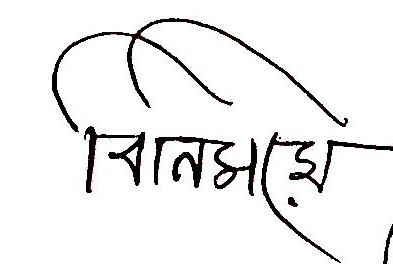 বিনিময়ে